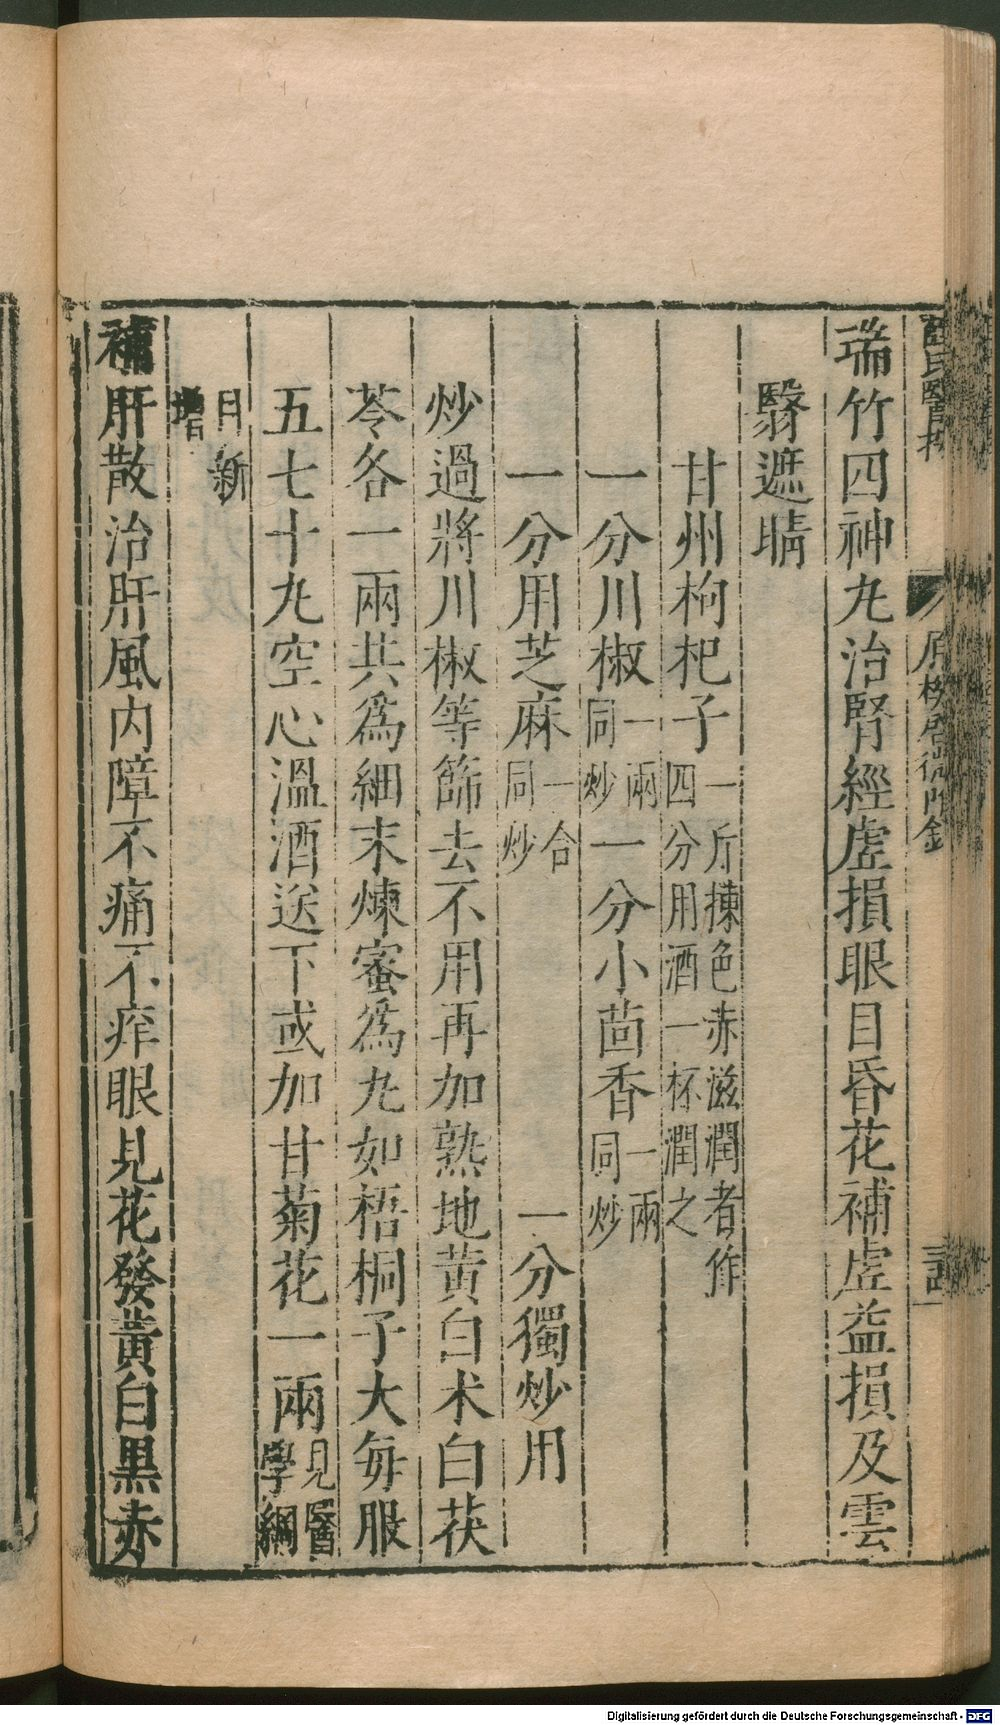 薛氏醫按
原機啓微附錄
瑞竹四神丸治腎經虛損眼目昏花補虛益損及雲
翳遮睛
甘州枸杞子一斤揀色赤滋潤者作四分用酒一杯潤之
一分川椒一兩同炒一分小茴香一兩同炒
一分用芝麻一合同炒一分獨炒用
炒過將川椒等篩去不用再加熟地黃白术白茯
苓各一兩共爲細末煉蜜爲丸如梧桐子大每服
五七十丸空心溫酒送下或加甘菊花一兩見醫學綱
目新增
補肝散治肝風內障不痛不痒眼見花發黃白黑赤
Digitalisierung gefördert durch die Deutsche Forschungsgemeinschaft - DFG